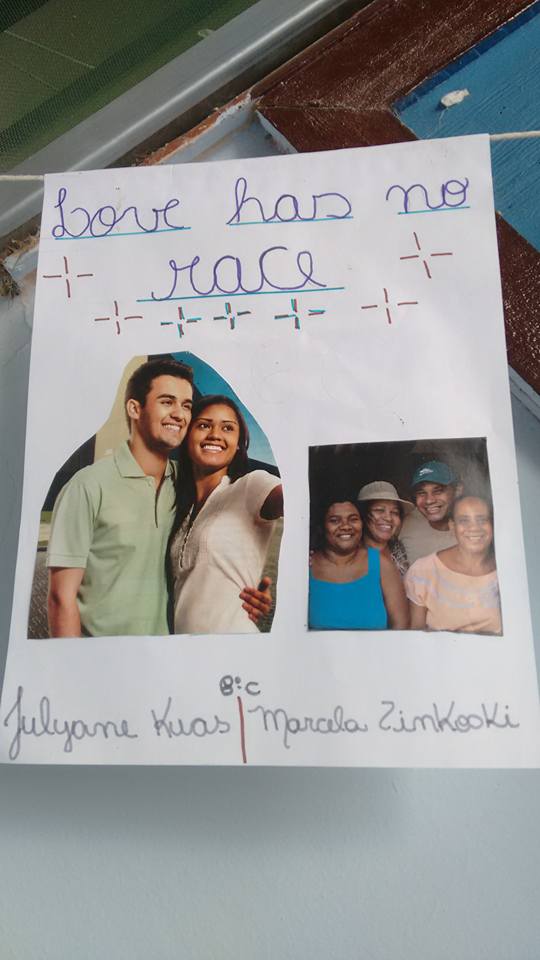 Love has no
race
8º C
Julyane Kuas | Marcela Zinkoski